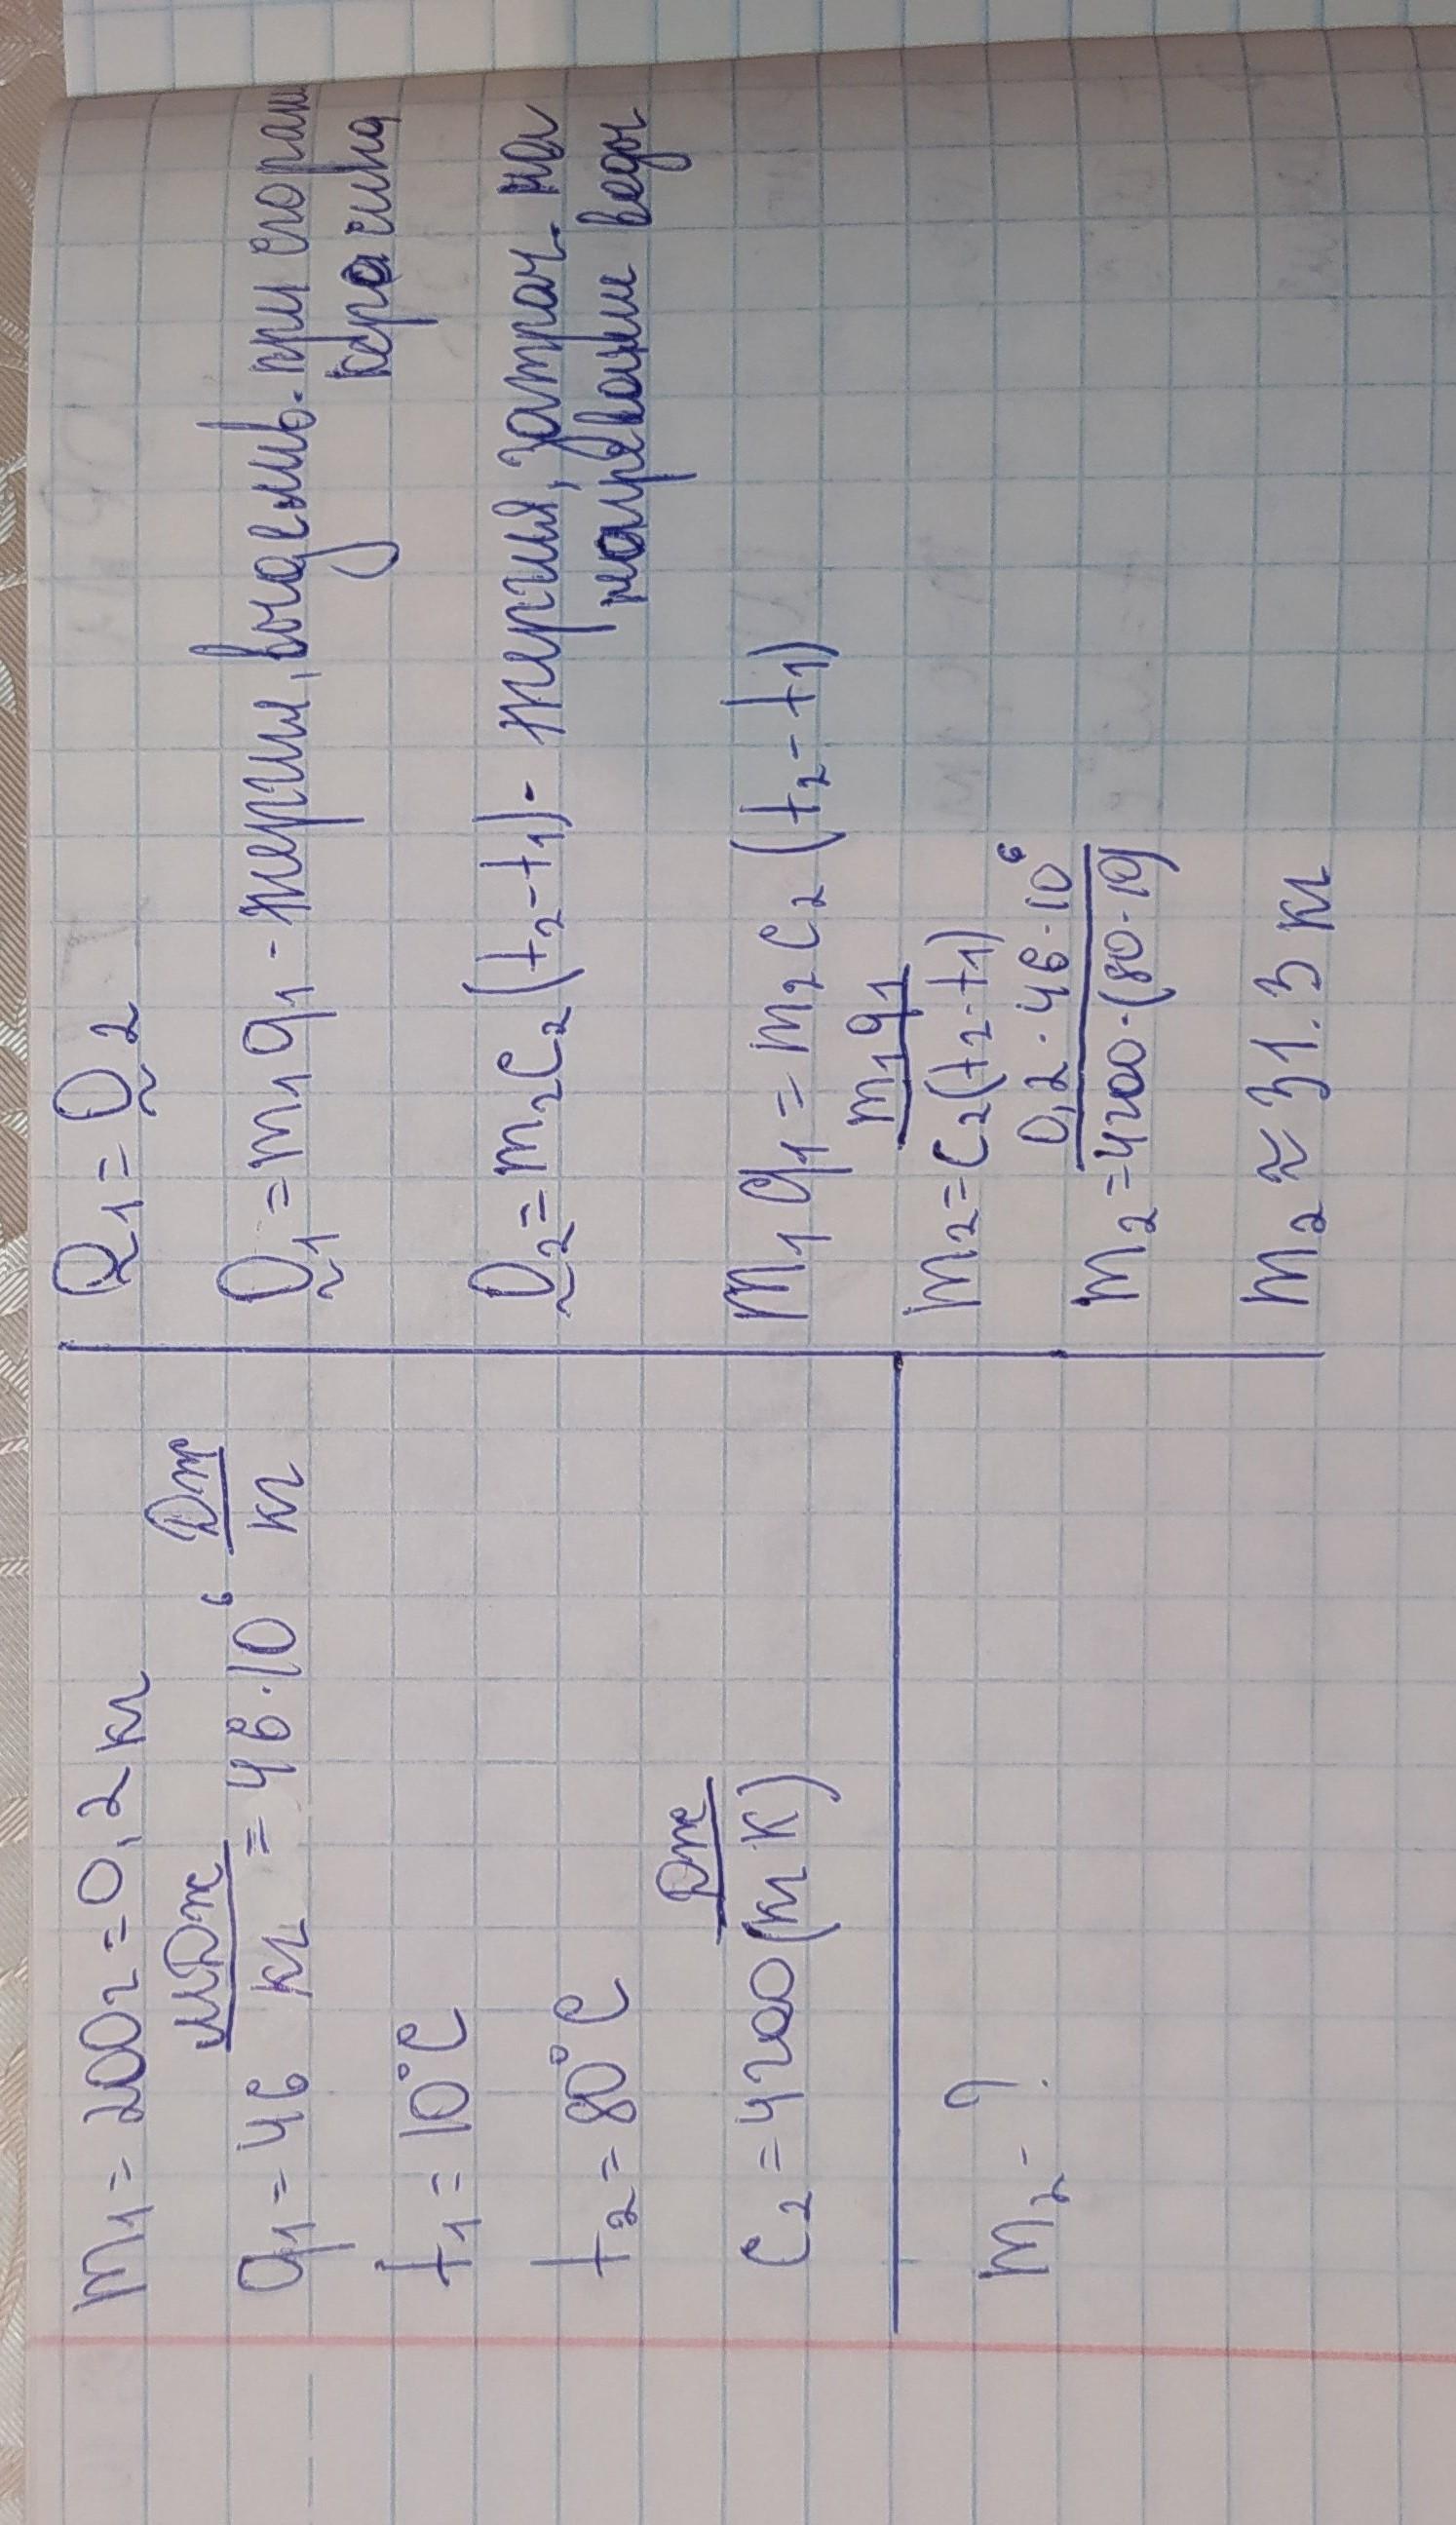 m₁ = 200г = 0,2 кг
q₁ = 46 МДж/кг = 46·10⁶ Дж/кг
t₁ = 10°C
t₂ = 80°C
c₂ = 4200 Дж/(кг К)
m₂ - ?
Q₁ = Q₂
Q₁ = m₁q₁ - энергия, выделив. при сгоран
керосина
Q₂ = m₂c₂(t₂-t₁) - энергия, затрач. на
нагревание воды
m₁q₁ = m₂c₂(t₂-t₁)
m₂ = m₁q₁/c₂(t₂-t₁)
m₂ = 0,2·46·10⁶/4200·(80·10)
m₂ ≈ 31.3 кг